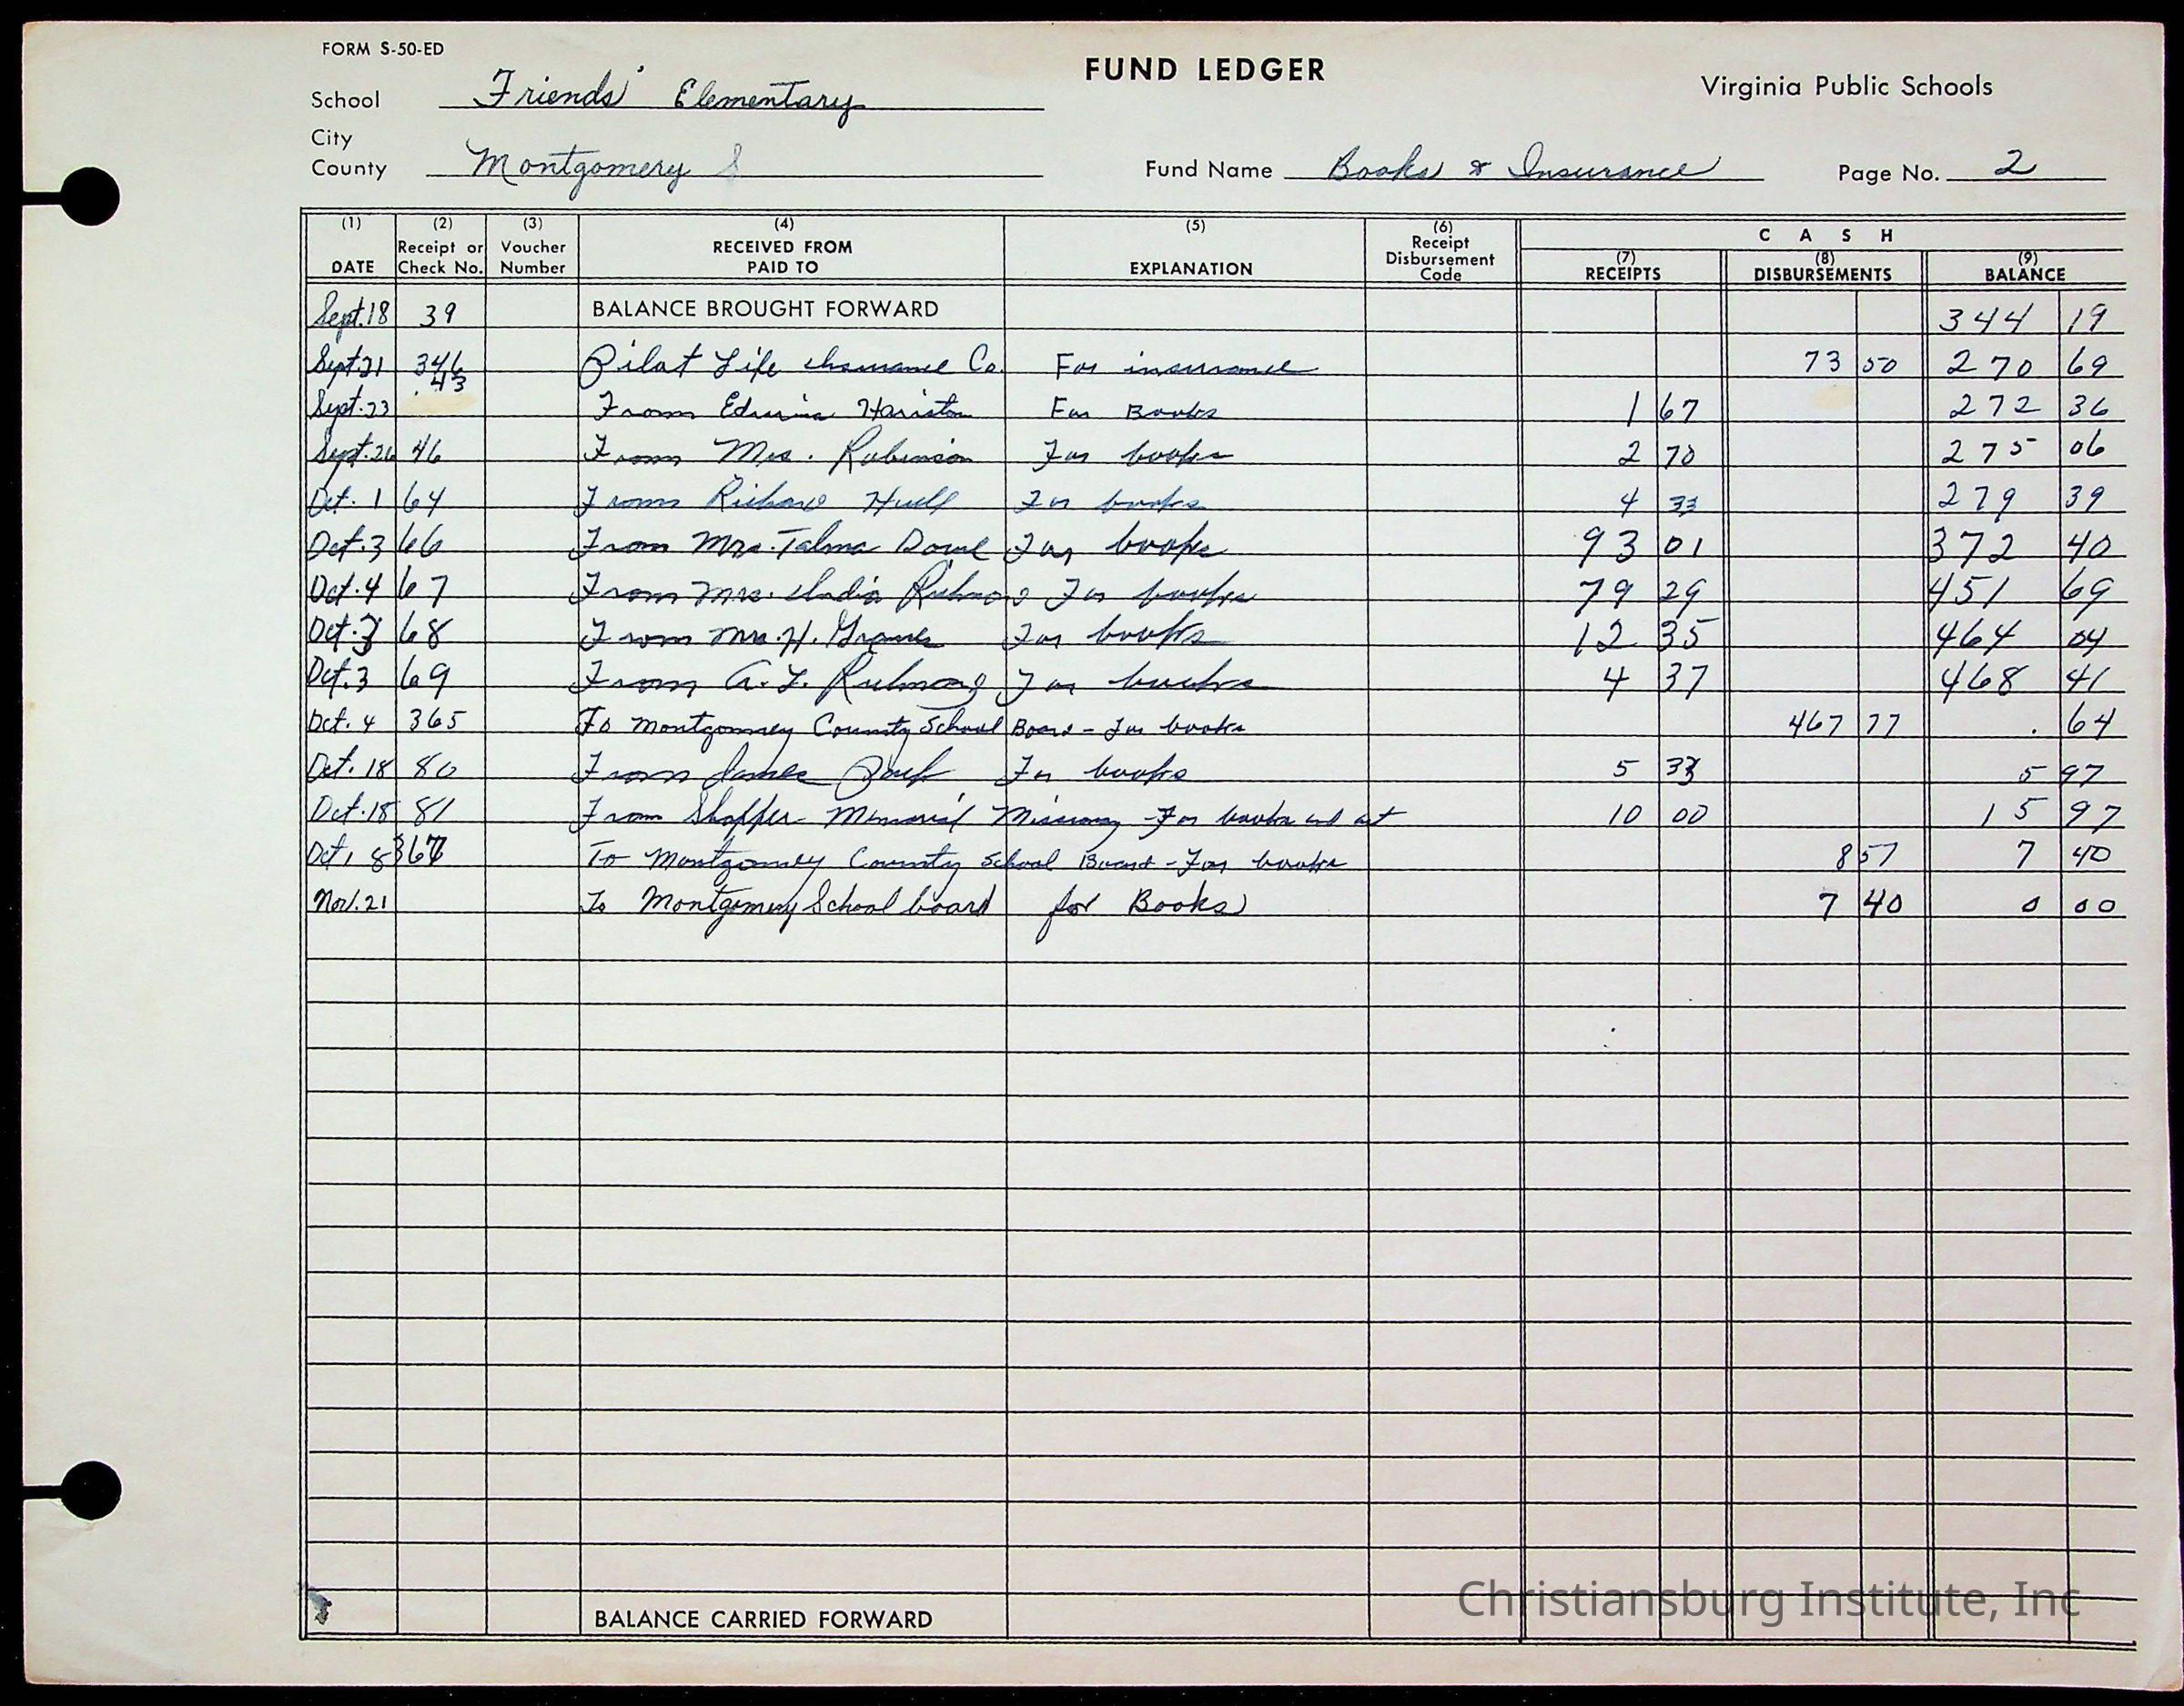 FORM S-50-ED
FUND LEDGER
Virginia Public Schools
School Friends' Elementary
City
County Montgomery
Fund Name Books & Insurance Page No. 2
(1) (2) (3) (4) (5) (6) C A S H
DATE Receipt or Check No. Voucher Number RECEIVED FROM PAID TO EXPLANATION Receipt Disbursement Code (7) RECEIPTS (8) DISBURSEMENTS (9) BALANCE
Sept.18 39 BALANCE BROUGHT FORWARD 344 19
Sept 21 346 Pilot Life Insurance Co. For insurance 73 50 270 69
Sept. 23 43 From Edwina Hariston For Books 1 67 272 36
Sept. 26 46 From Mrs. Robinson For books 2 70 275 06
Oct. 1 64 From Richard Hull For books 4 33 279 39
Oct. 3 66 From Mrs. Talma For books 93 01 372 40
Oct. 4 67 From Mrs. For books 79 29 451 69
Oct. 3 68 From Mrs. H. Graves For books 12 35 464 04
Oct. 3 69 From A. L. Richmond For books 4 37 468 41
Oct. 4 365 To Montgomery County School Board - For books 467 77 . 64
Oct. 18 80 From James For books 5 33 5 97
Oct. 18 81 From Shaffer Memorial Missionary - For books and art 10 00 15 97
Oct 18 367 To Montgomery County School Board - For books 8 57 7 40
Nov. 21 To Montgomery School board for Books 7 40 0 00
BALANCE CARRIED FORWARD
Christiansburg Institute, Inc